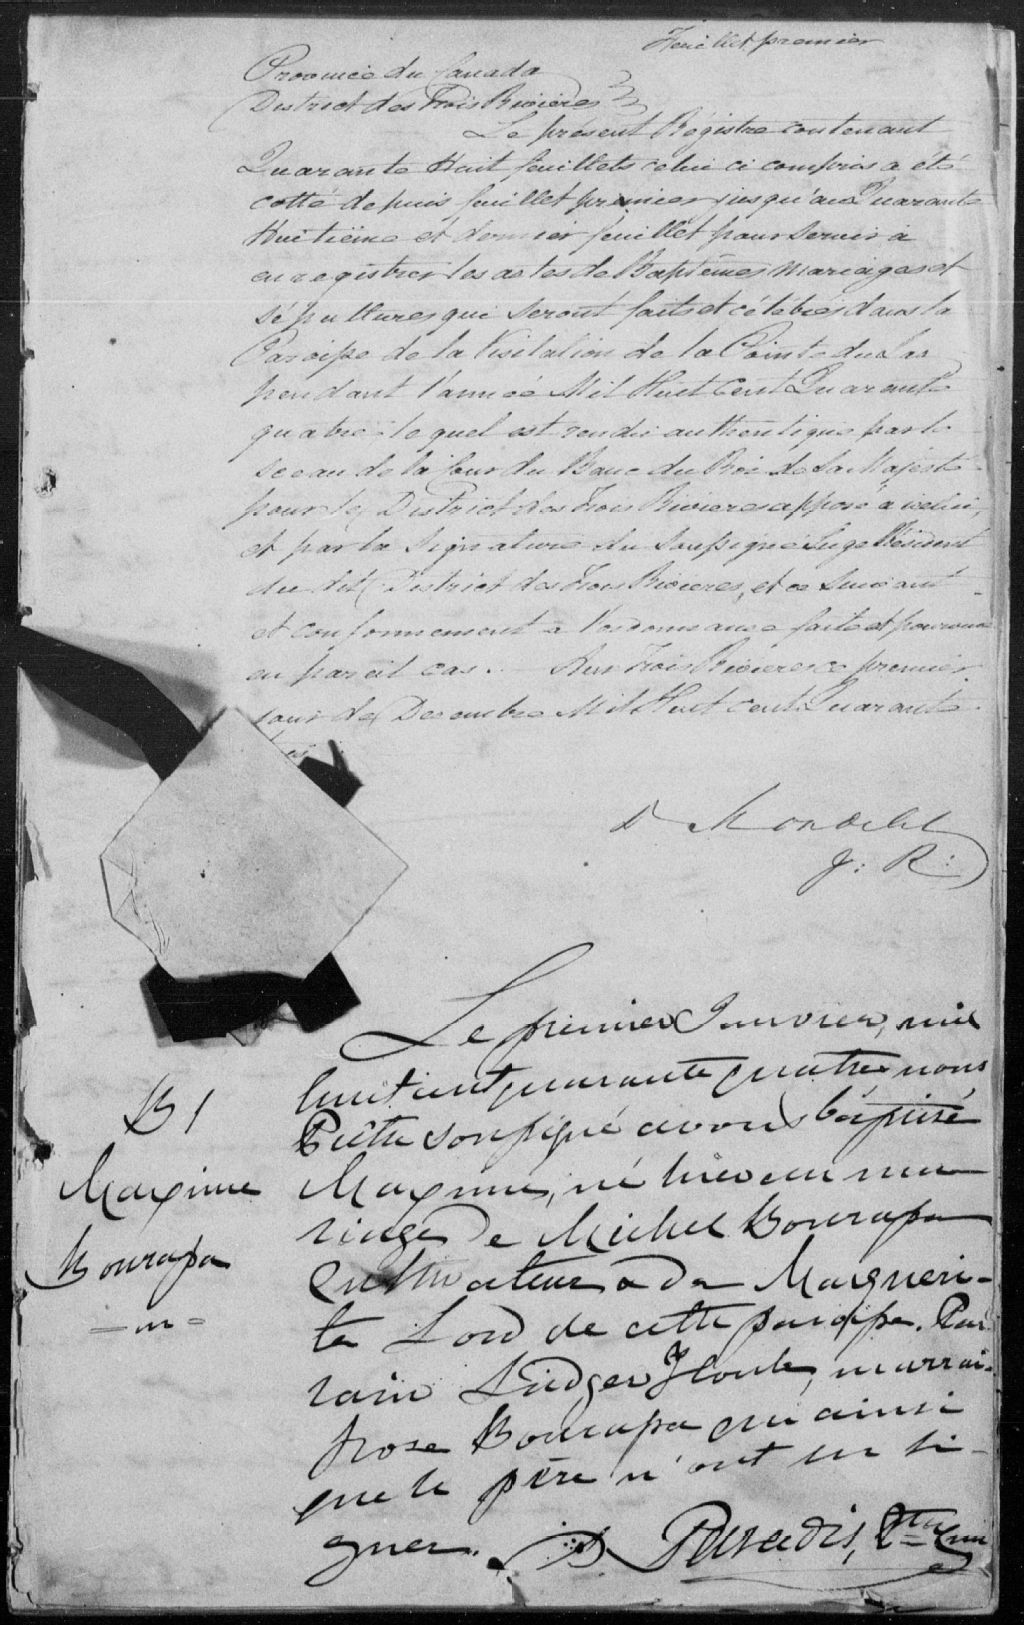 Feuillet premier
Province du Canada
District des Trois Rivieres
Le présent Régistre contenant
Quarante Huit feuillets celui ci compris a été
cotté depuis feuillet premier jusqu'au Quarante
Huitième et dernier feuillet pour servir à
enregistrer les actes de Baptêmes mariages et
sépultures qui seront faits et célébrés dans la
Paroisse de la Visitation de la Pointe du Lac
pendant l'année Mil Huit Cent Quarante
quatre le quel est rendu authentique par le
sceau de la Cour du Banc du Roi de Sa Majesté
pour le District des Trois Rivieres apposé a icelui,
et par la Signature du Soussigné Juge Résident
du dit District des Trois Rivieres, et ce suivant
et conformement a l'ordonnance faite et pourvue
en pareil cas. Aux Trois Rivieres ce premier
jour de Decembre Mil Huit cent Quarante
trois
D Mondelet
J: R:
Le premier Janvier, mil
huit cent quarante quatre nous
Prêtre soussigné avons baptisé
Maxime, né hier du ma
riage de Michel Bourassa
Cultivateur & de Margueri-
te Lord de cette paroisse. Par
rain Ludger, marrai-
Rose Bourassa qui ainsi
que le père n'ont su si-
gner. Paradis, Ptre Curé
B 1
Maxime
Bourassa